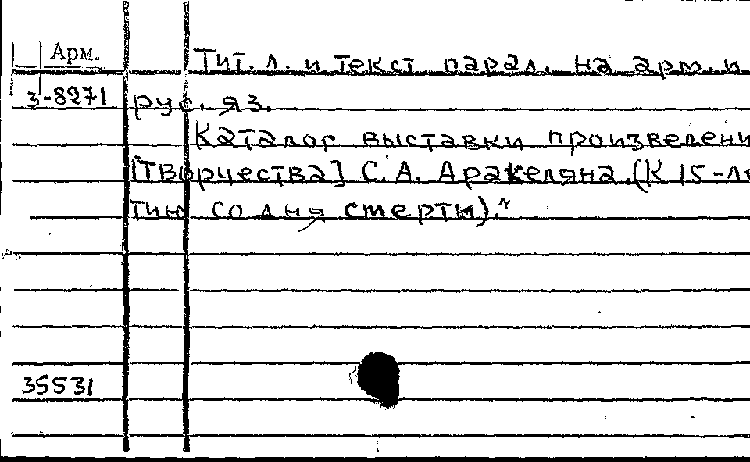 Арм.
Тит. л. и текст парал. на арм. и
3-8271 рус. яз.
Каталог выставки произведени
[Творчества] С. А. Аракеляна. (К 15-ле
тию со дня смерти)."
35531